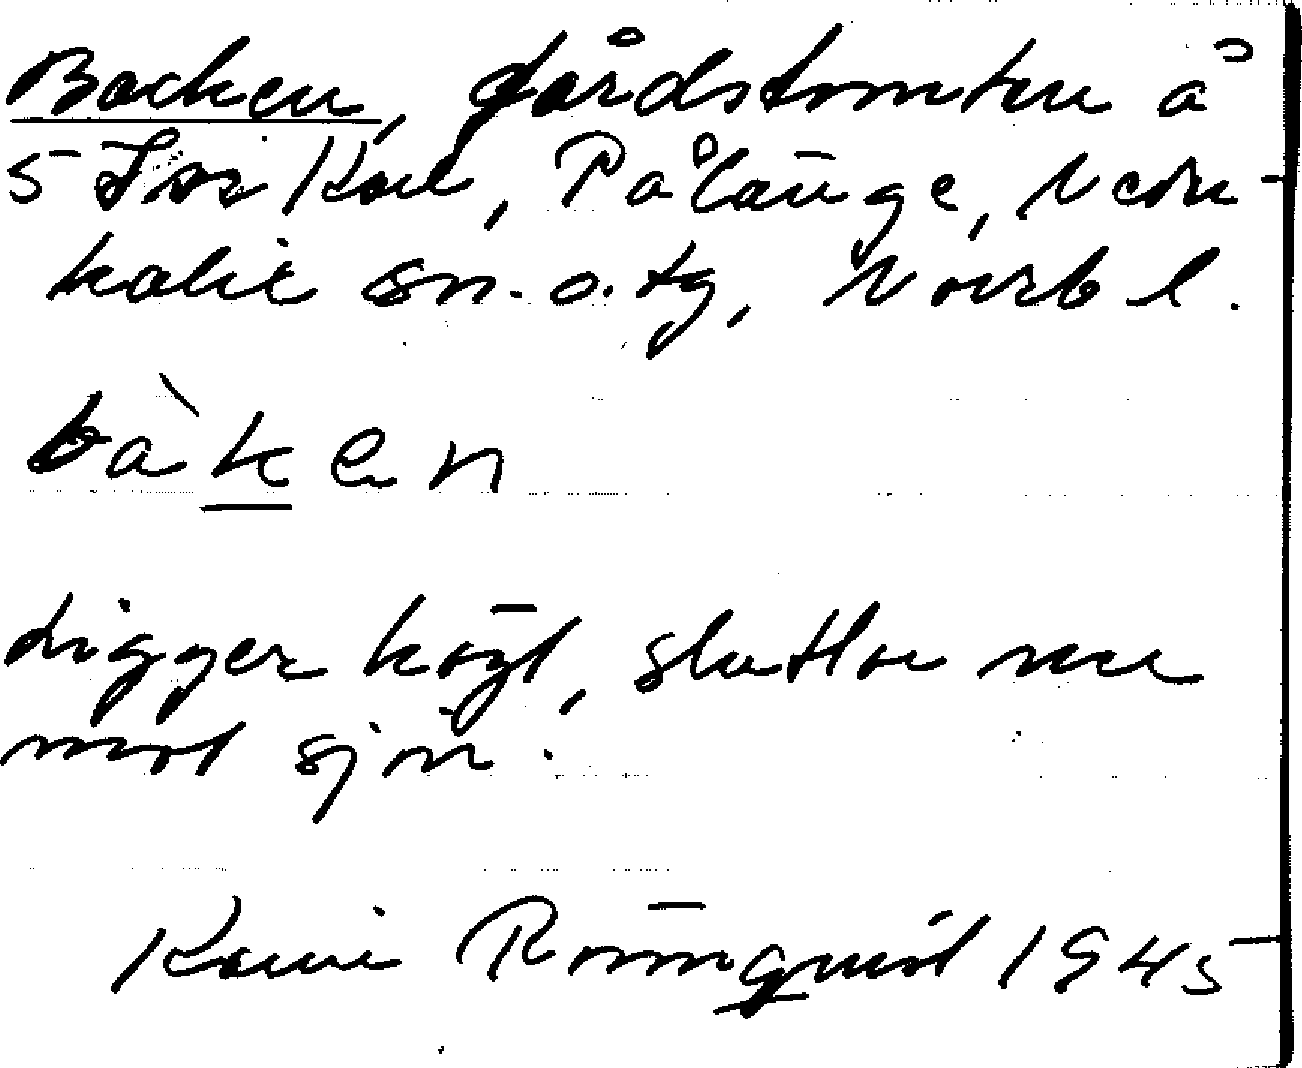 Backen, gårdstomten å
5 Karl, Pålänge, Neder-
kalix sn. o. tg, Norrb l.
bàken
ligger högt, sluttar ner
mot sjön.
Rönnqvist 1945